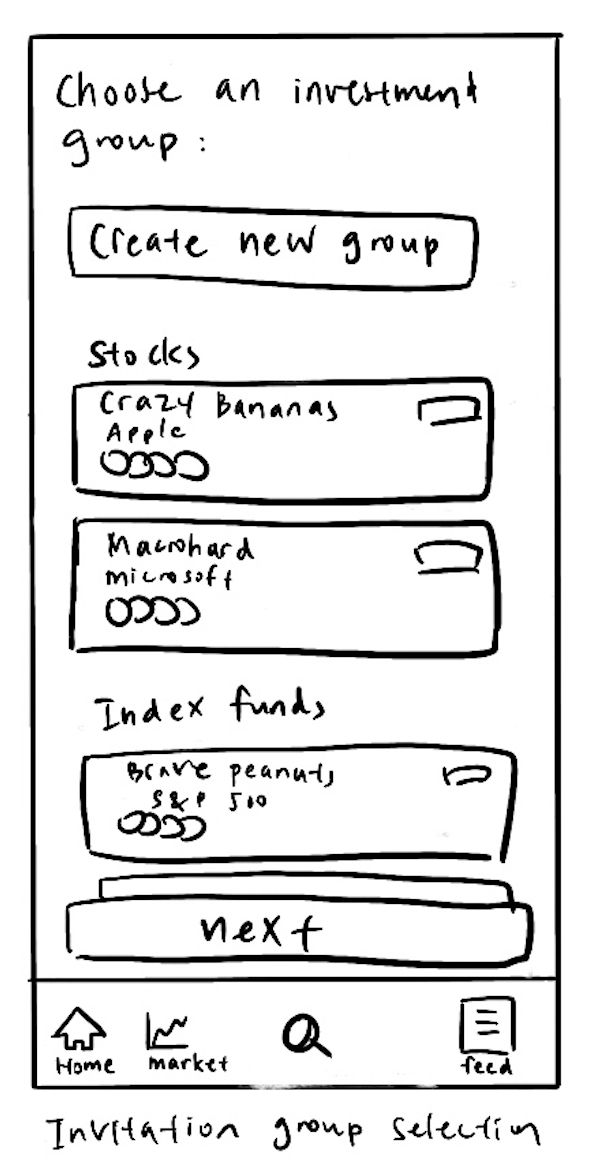 Choose an investment
group :
Create new group
Stocks
Crazy Bananas
Apple
Macrohard
microsoft
Index funds
Brave peanuts
S&P 500
next
Home
market
feed
Invitation group selection